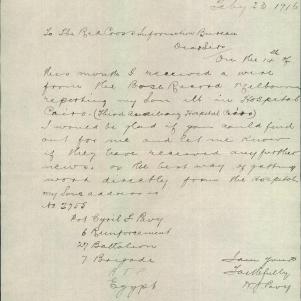 Feby 23 1916
To The Red Cross Information Bureau
Dear Sirs
On the 14th of
this month I received a wire
from the Base Record Melbourne
reporting my Son ill in Hospital
Cairo. (Third Auxiliary Hospital Cairo)
I would be glad if you could find
out for me and let me know
if they have received any further
news. or the best way of getting
word directly from the Hospital
my Sons address is
No 2755
Pvt Cyril L Pavy
6 Reinforcement
27 Battalion
7 Brigade
Egypt
I am yours
Faithfully
W J Pavy